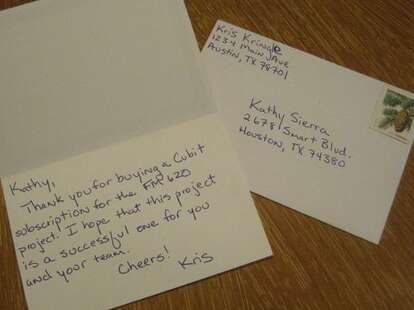 Kathy,
Thank you for buying a Cubit
subscription for the FM 620
project. I hope that this project
is a successful one for you
and your team.
Cheers!
Kris
Kris Kringle
1234 Main Ave
Austin, TX 78701
Kathy Sierra
2678 Smart Blvd.
Houston, TX 74380